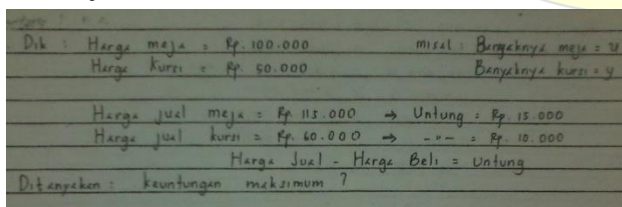 Dik : Harga meja = Rp. 100.000 misal : Banyaknya meja = x
Harga kursi = Rp. 50.000 Banyaknya kursi = y
Harga jual meja = Rp. 115.000 → Untung = Rp. 15.000
Harga jual kursi = Rp. 60.000 → -"- = Rp. 10.000
Harga Jual - Harga Beli = Untung
Ditanyakan : keuntungan maksimum ?